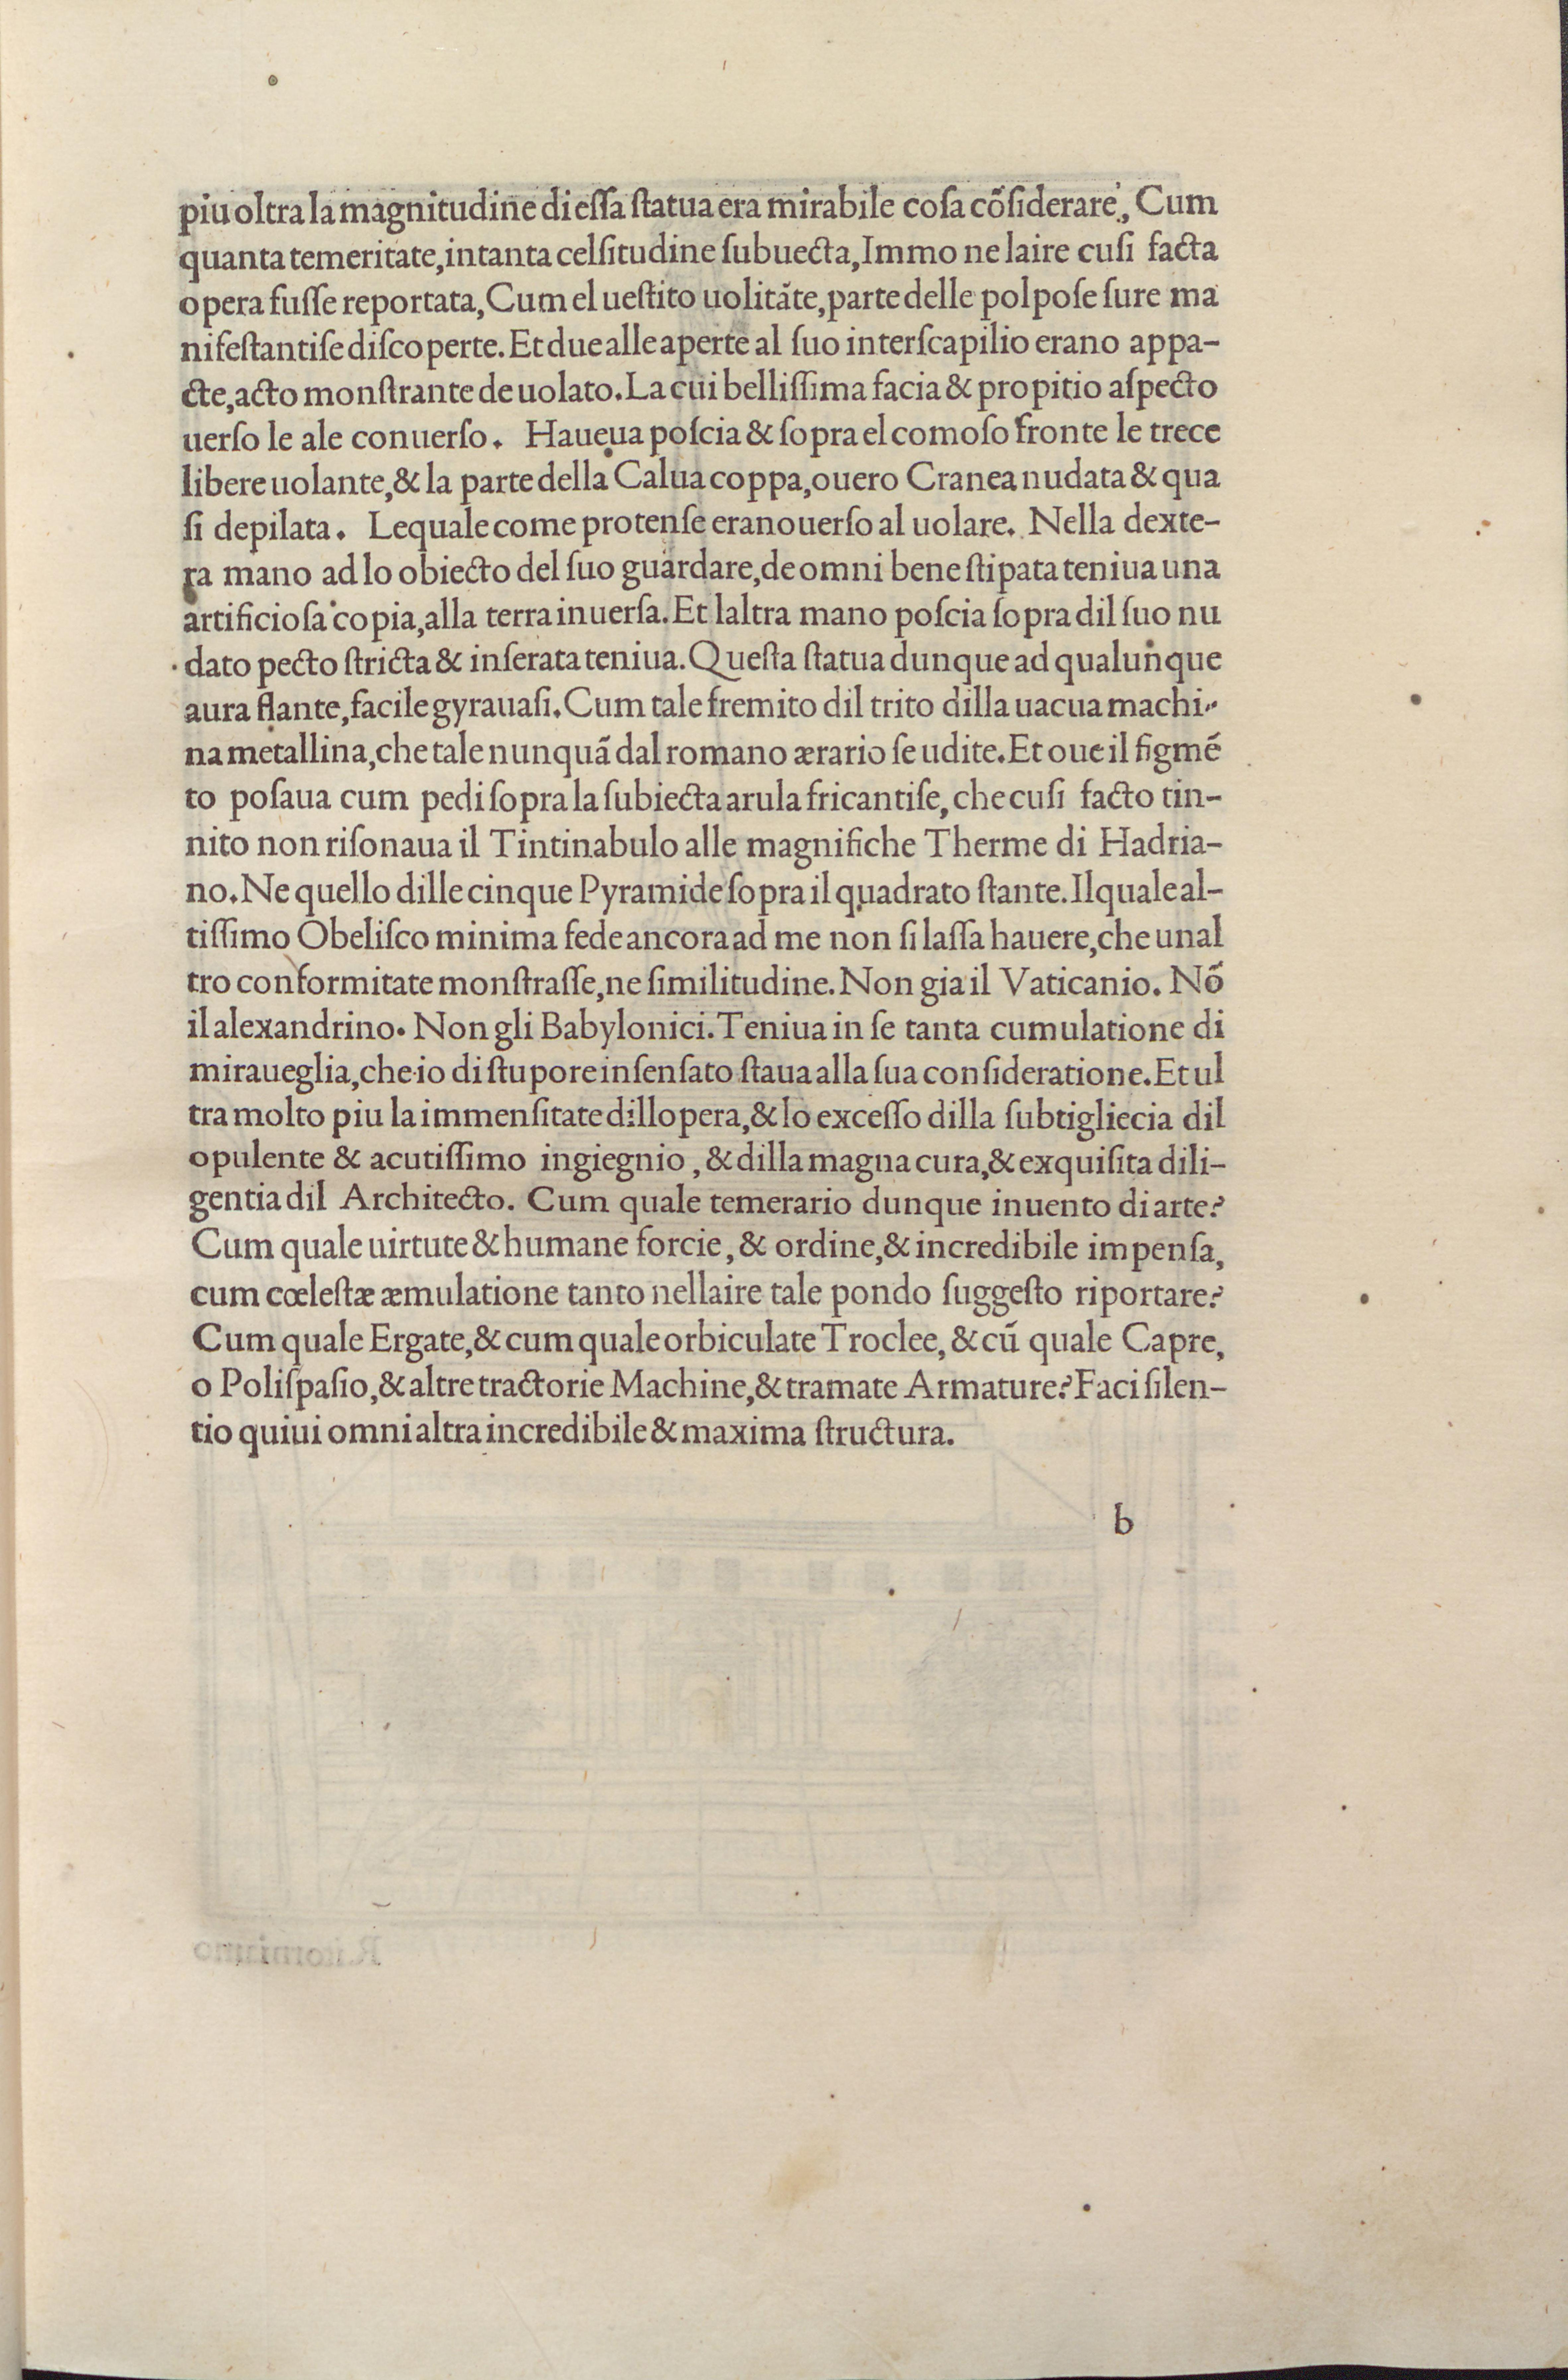 piu oltra la magnitudine di eſſa ſtatua era mirabile coſa cõſiderare, Cum
quanta temeritate, in tanta celſitudine ſubuecta, Immo ne laire cuſi facta
opera fuſſe reportata, Cum el ueſtito uolitãte, parte delle polpoſe ſure ma
nifeſtantiſe diſcoperte. Et due alle aperte al ſuo interſcapilio erano appa-
cte, acto monſtrante de uolato. La cui belliſſima facia & propitio aſpecto
uerſo le ale conuerſo. Haueua poſcia & ſopra el comoſo fronte le trece
libere uolante, & la parte della Calua coppa, ouero Cranea nudata & qua
ſi depilata. Lequale come protenſe erano uerſo al uolare. Nella dexte-
ra mano ad lo obiecto del ſuo guardare, de omni bene ſtipata teniua una
artificioſa copia, alla terra inuerſa. Et laltra mano poſcia ſopra dil ſuo nu
dato pecto ſtricta & inſerata teniua. Queſta ſtatua dunque ad qualunque
aura flante, facile gyrauaſi. Cum tale fremito dil trito dilla uacua machi-
na metallina, che tale nunquã dal romano ærario ſe udite. Et oue il figmẽ
to poſaua cum pedi ſopra la ſubiecta arula fricantiſe, che cuſi facto tin-
nito non riſonaua il Tintinabulo alle magnifiche Therme di Hadria-
no. Ne quello dille cinque Pyramide ſopra il quadrato ſtante. Ilquale al-
tiſſimo Obeliſco minima fede ancora ad me non ſi laſſa hauere, che unal
tro conformitate monſtraſſe, ne ſimilitudine. Non gia il Vaticanio. Nõ
il alexandrino. Non gli Babylonici. Teniua in ſe tanta cumulatione di
miraueglia, che io di ſtupore inſenſato ſtaua alla ſua conſideratione. Et ul
tra molto piu la immenſitate dillopera, & lo exceſſo dilla ſubtigliecia dil
opulente & acutiſſimo ingiegnio, & dilla magna cura, & exquiſita dili-
gentia dil Architecto. Cum quale temerario dunque inuento di arte?
Cum quale uirtute & humane forcie, & ordine, & incredibile impenſa,
cum cœleſtæ æmulatione tanto nellaire tale pondo ſuggeſto riportare?
Cum quale Ergate, & cum quale orbiculate Troclee, & cũ quale Capre,
o Poliſpaſio, & altre tractorie Machine, & tramate Armature? Faci ſilen-
tio quiui omni altra incredibile & maxima ſtructura.
b